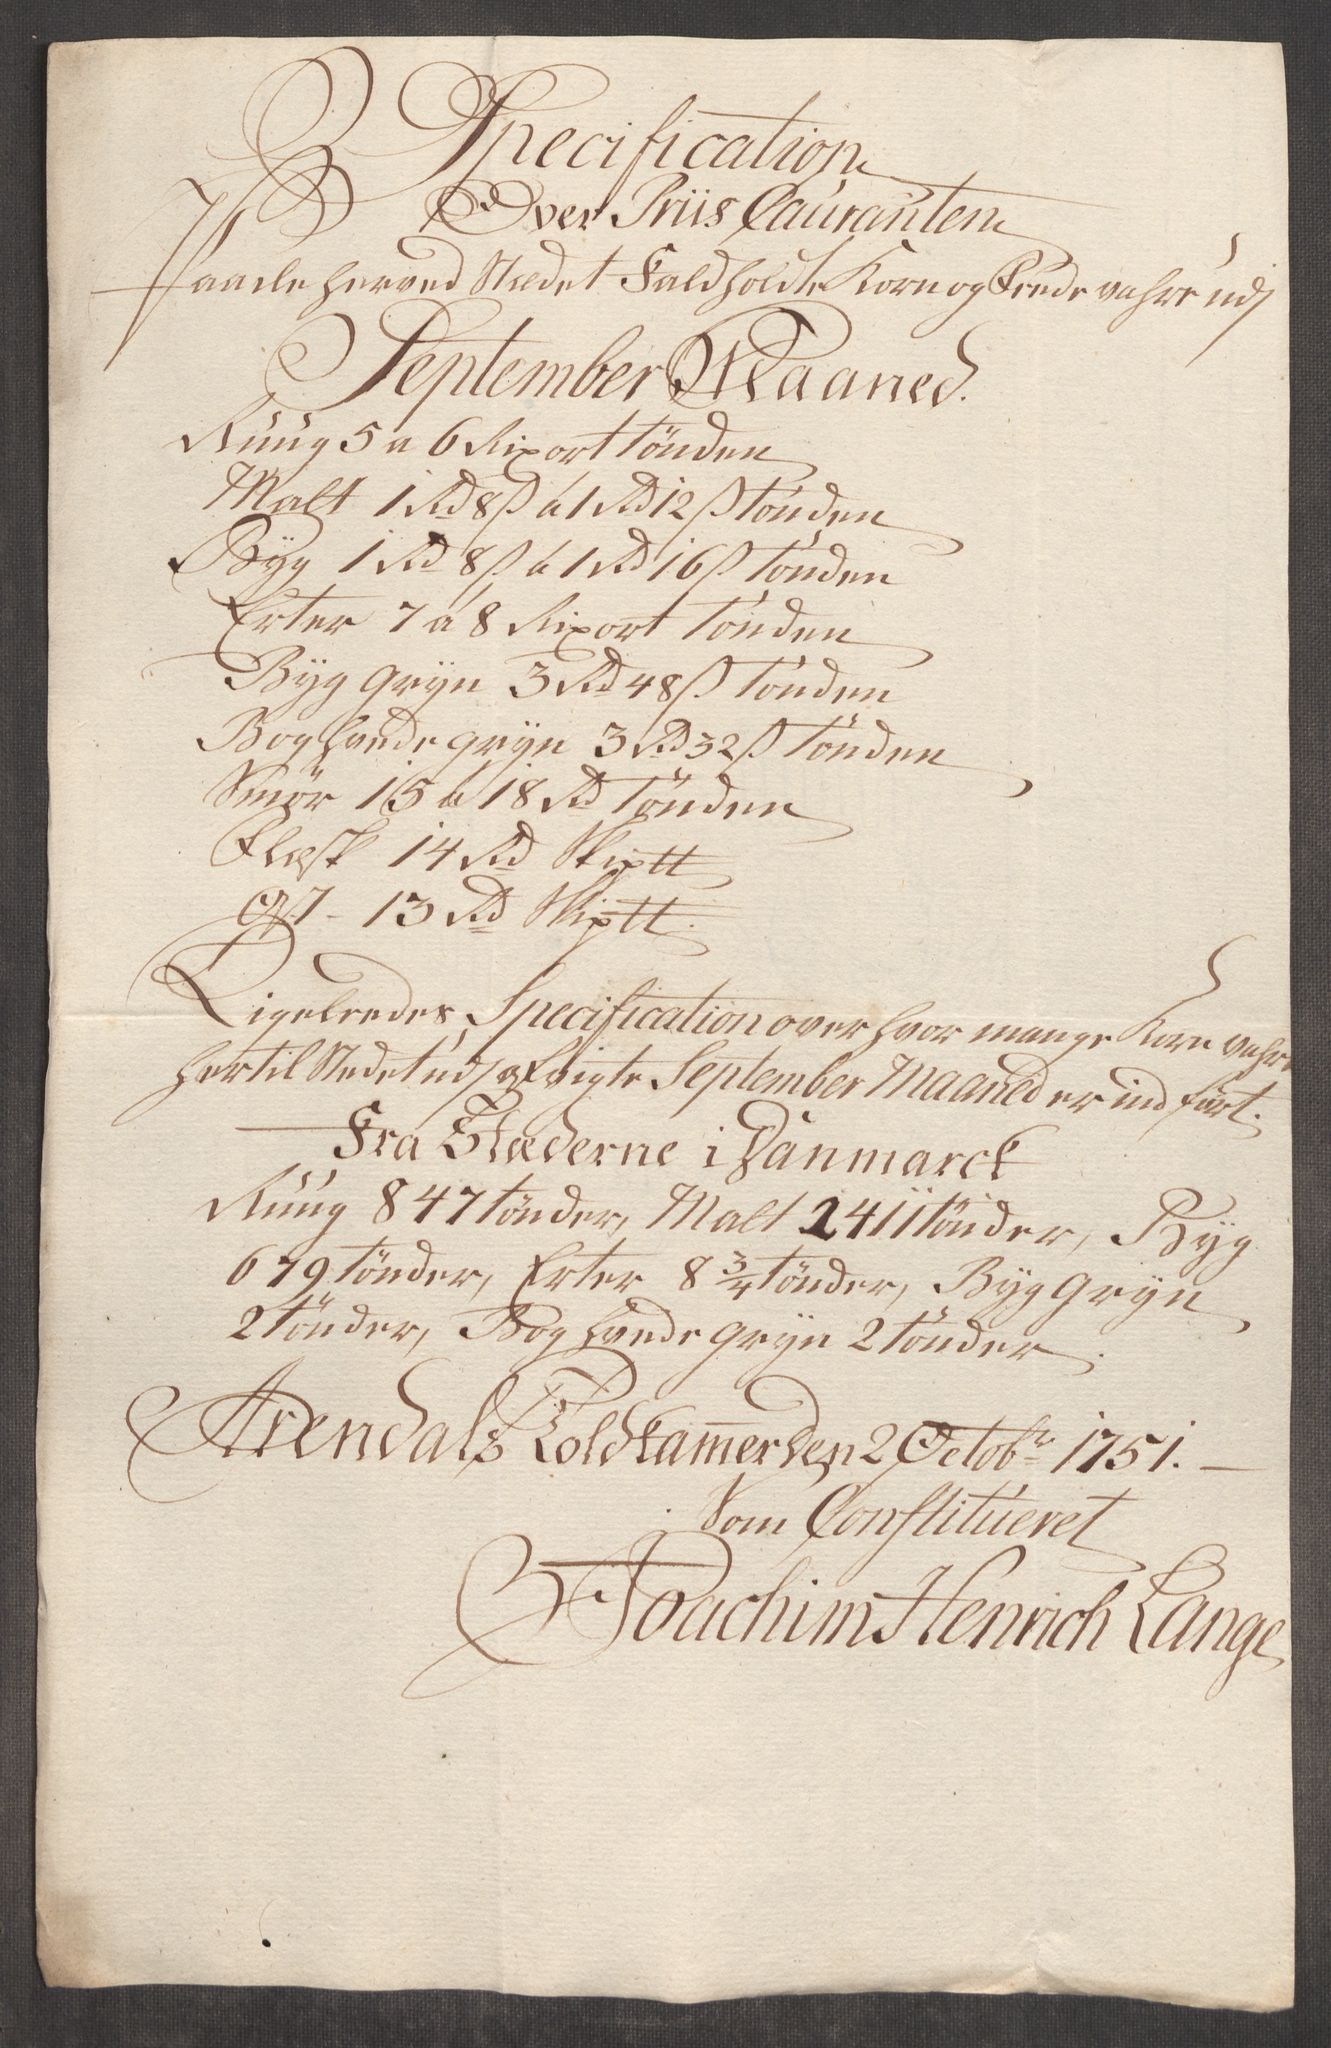 Specification
Over Priis Couranten
Paa de her ved Stædet Faldholdte Korn og Fede vahre udj
September Maaned.
Ruug 5 a 6 Rixort tönden
Malt 1 Rd 8 ß á 1 Rd 12 ß tönden
Byg 1 Rd 8 ß á 1 Rd 16 ß tönden
Erter 7 á 8 Rixort tönden
Byg gryn 3 Rd 48 ß tönden
Boghvede gryn 3 Rd 32 ß tönden
Smör 15 á 18 Rd tönden
Flæsk 14 Rd Skiptt
Ost - 13 Rd Skiptt.
Ligeleedes Specification over hvor mange Korn vahre
her til Stedet udj afvigte September Maaned er ind fört.
Fra Stæderne i Danmarck
Ruug 847 tönder, Malt 2411 tönder, Byg
679 tönder, Erter 8 3/4 tönder, Byg gryn
2 tönder, Boghvede gryn 2 tönder.
Arendals Toldkammer den 2 Octobr 1751. -
Som Constitueret
Joachim Henrich Lange